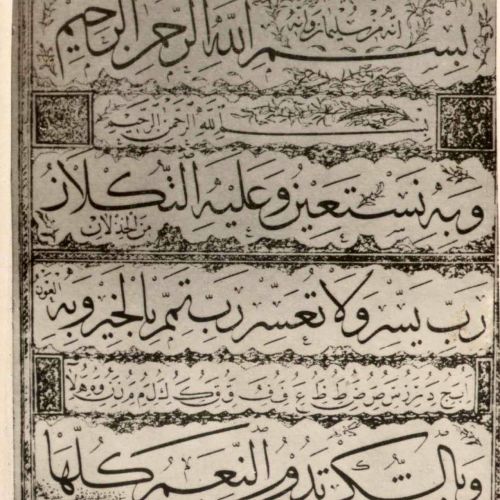 انه من سليمان وانه
بسم الله الرحمن الرحيم
بسم الله الرحمن الرحيم
وبه نستعين وعليه التكلان
من الخذلان
رب يسر ولا تعسر رب تمم بالخير وبه
العون
وبالشكر تدوم النعم كلها